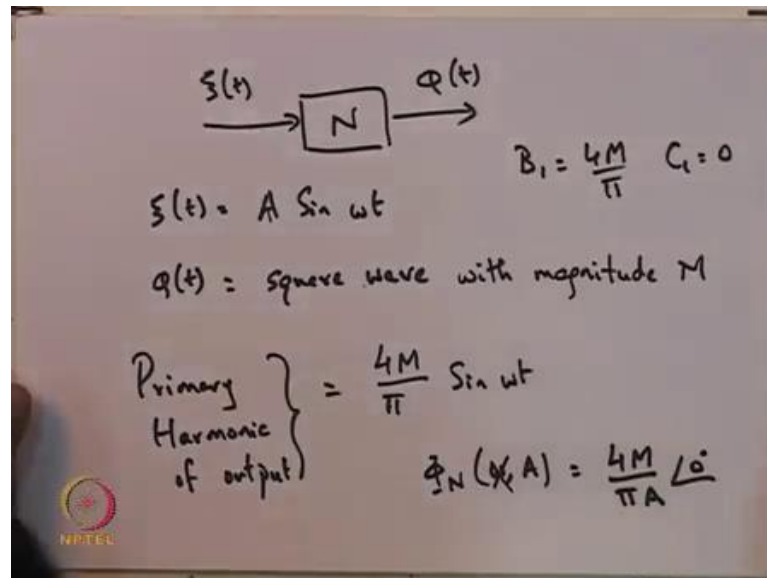 ξ(t) → N → Q(t)
B₁ = 4M/π C₁ = 0
ξ(t) = A Sin ωt
Q(t) = square wave with magnitude M
Primary Harmonic of output } = 4M/π Sin ωt
Φ_N (A) = 4M/πA ∠0°
NPTEL